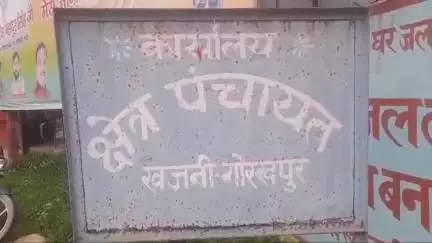 कार्यालय
क्षेत्र पंचायत
खजनी-गोरखपुर
घर जल